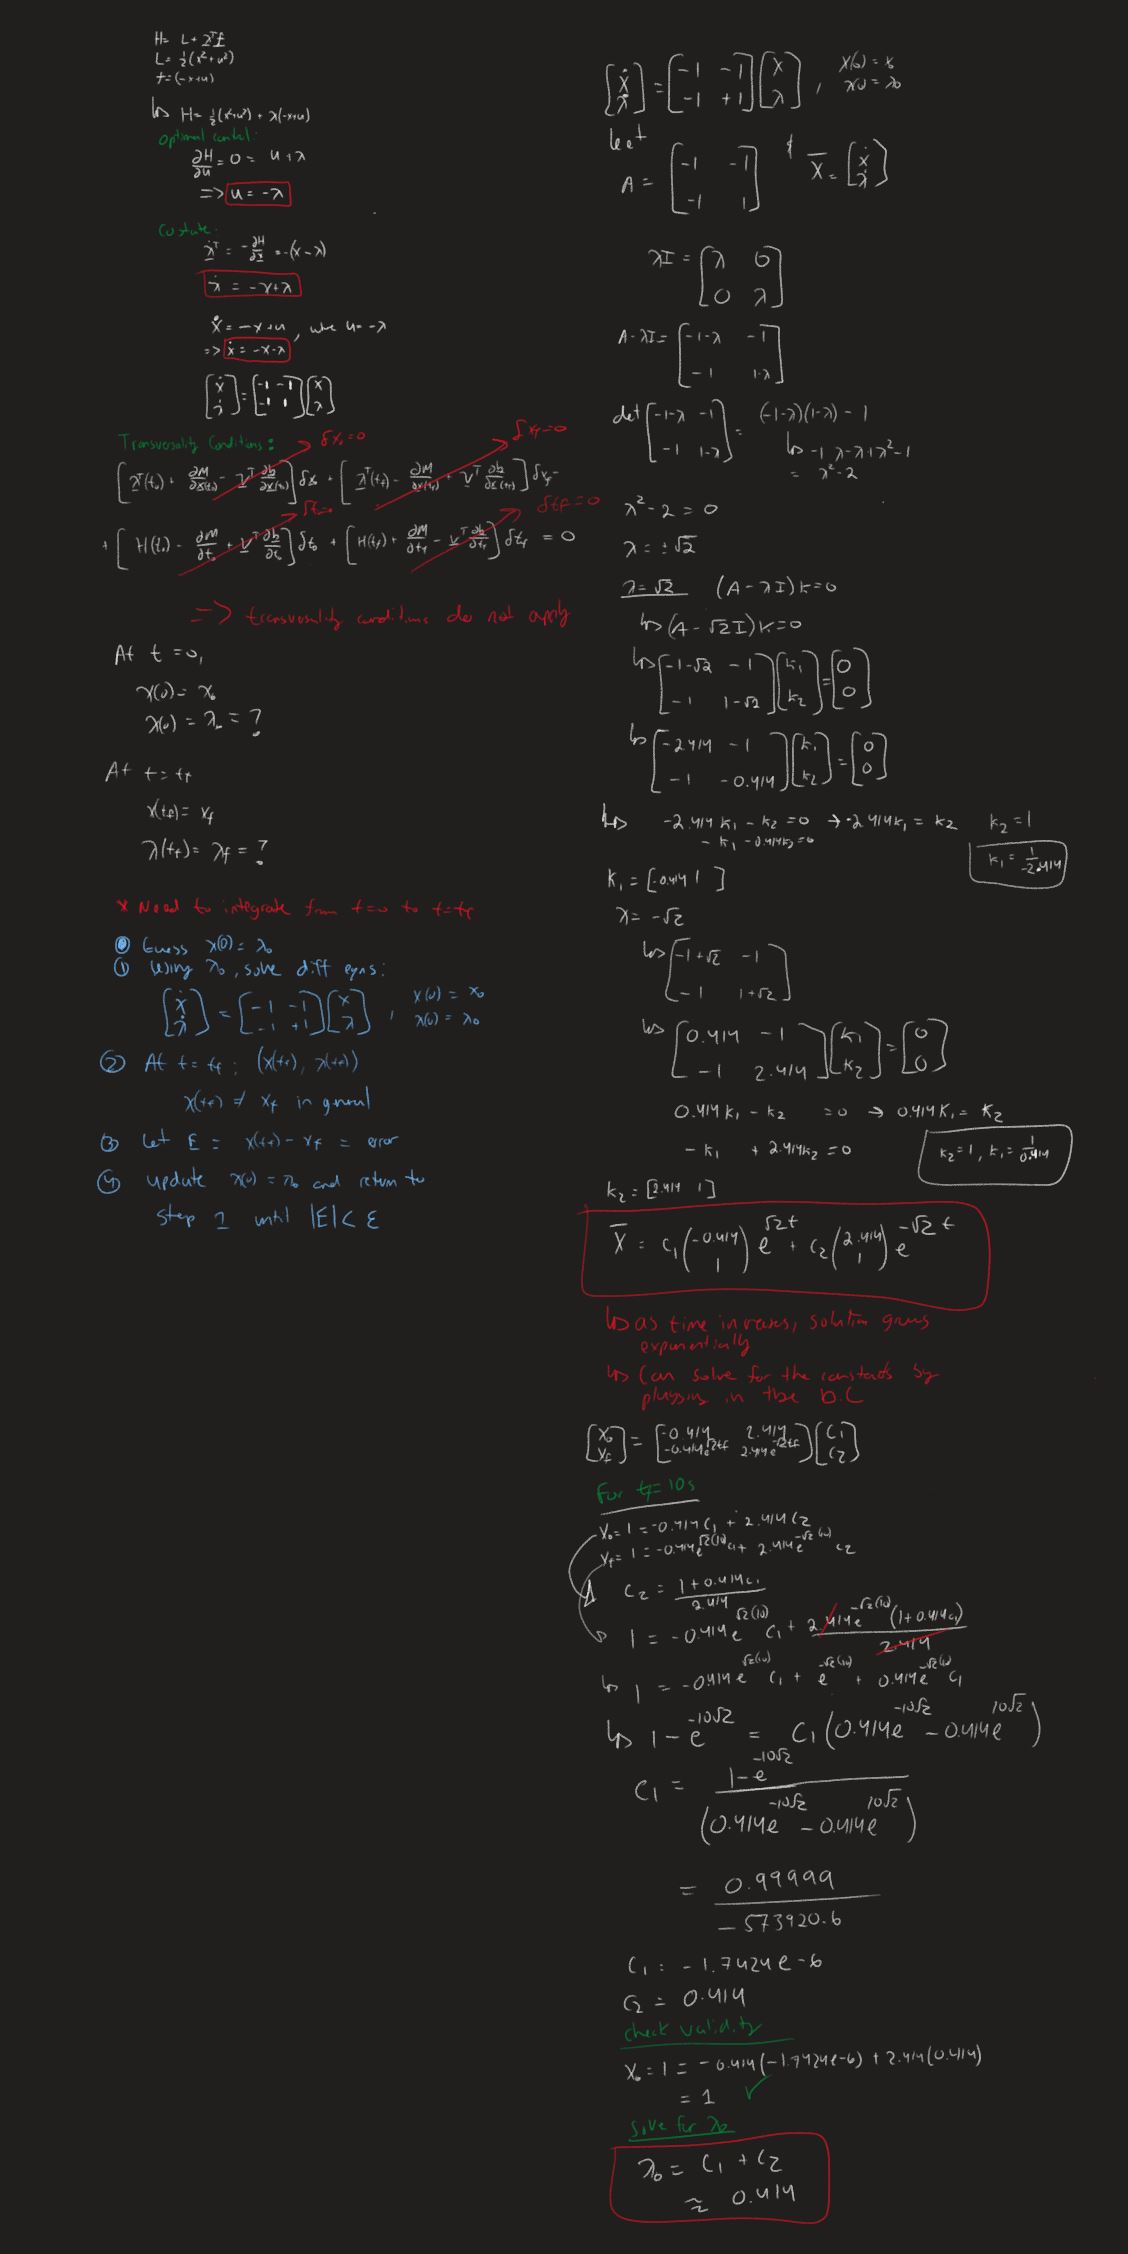 H = L + λᵀf
L = ½(x²+u²)
f = (-x+u)
↳ H = ½(x²+u²) + λ(-x+u)
Optimal control:
∂H/∂u = 0 = u + λ
=> u = -λ
Costate:
λ̇ᵀ = -∂H/∂x = -(x-λ)
λ̇ = -x+λ
ẋ = -x+u, where u = -λ
=> ẋ = -x-λ
[ẋ λ̇] = [-1 -1; -1 1][x λ]
Transversality Conditions:
δx₀=0
δxf=0
[λᵀ(t₀) + ∂M/∂x(t₀) - νᵀ ∂b/∂x(t₀)] δx₀ + [λᵀ(tf) - ∂M/∂x(tf) + νᵀ ∂b/∂x(tf)] δxf -
δt₀=0
δtf = 0
+ [H(t₀) - ∂M/∂t₀ + νᵀ ∂b/∂t₀] δt₀ + [H(tf) + ∂M/∂tf - νᵀ ∂b/∂tf] δtf = 0
=> transversality conditions do not apply
At t = 0,
x(0) = x₀
λ(0) = λ₀ = ?
At t = tf
x(tf) = xf
λ(tf) = λf = ?
* Need to integrate from t=0 to t=tf
⓪ Guess λ(0) = λ₀
① Using λ₀, solve diff eqns:
[ẋ λ̇] = [-1 -1; -1 +1][x λ], x(0) = x₀
λ(0) = λ₀
② At t = tf: (x(tf), λ(tf))
x(tf) ≠ xf in general
③ Let E = x(tf) - xf = error
④ update λ(0) = λ₀ and return to
step 1 until |E| < ε
[ẋ λ̇] = [-1 -1; -1 +1][x λ], x(0) = x₀
λ(0) = λ₀
let
A = [-1 -1; -1 1] & X̄ = [ẋ λ̇]
λI = [λ 0; 0 λ]
A-λI = [-1-λ -1; -1 1-λ]
det [-1-λ -1; -1 1-λ] = (-1-λ)(1-λ) - 1
↳ -1 λ-λ+λ²-1
= λ²-2
λ²-2 = 0
λ = ±√2
λ=√2 (A-λI)K=0
↳ (A-√2I)K=0
↳ [-1-√2 -1; -1 1-√2][k₁ k₂] = [0 0]
↳ [-2.414 -1; -1 -0.414][k₁ k₂] = [0 0]
↳ -2.414 k₁ - k₂ = 0 → -2.414k₁ = k₂ k₂ = 1
- k₁ - 0.414k₂ = 0
k₁ = 1/-2.414
K₁ = [-0.414 1]
λ = -√2
↳ [-1+√2 -1; -1 1+√2]
↳ [0.414 -1; -1 2.414][k₁ k₂] = [0 0]
0.414k₁ - k₂ = 0 → 0.414k₁ = k₂
- k₁ + 2.414k₂ = 0
k₂=1, k₁ = 1/0.414
K₂ = [2.414 1]
X̄ = c₁(-0.414 1) e^√2t + c₂(2.414 1) e^-√2t
↳ as time increases, solution grows
exponentially
↳ Can solve for the constants by
plugging in the B.C
[x₀ xf] = [-0.414 2.414; -0.414e^√2tf 2.414e^-√2tf][c₁ c₂]
For tf=10s
x₀ = 1 = -0.414 c₁ + 2.414 c₂
xf = 1 = -0.414e^√2(10) c₁ + 2.414e^-√2(10) c₂
c₂ = (1+0.414c₁)/2.414
1 = -0.414e^√2(10) c₁ + 2.414e^-√2(10) (1+0.414c₁)/2.414
↳ 1 = -0.414e^√2(10) c₁ + e^-√2(10) + 0.414e^-√2(10) c₁
↳ 1-e^-10√2 = c₁(0.414e^-10√2 - 0.414e^10√2)
c₁ = (1-e^-10√2)/(0.414e^-10√2 - 0.414e^10√2)
= 0.99999/-573920.6
c₁ = -1.7424e-6
c₂ = 0.414
check validity
x₀ = 1 = -0.414(-1.7424e-6) + 2.414(0.414)
= 1 ✓
solve for λ₀
λ₀ = c₁ + c₂
≈ 0.414